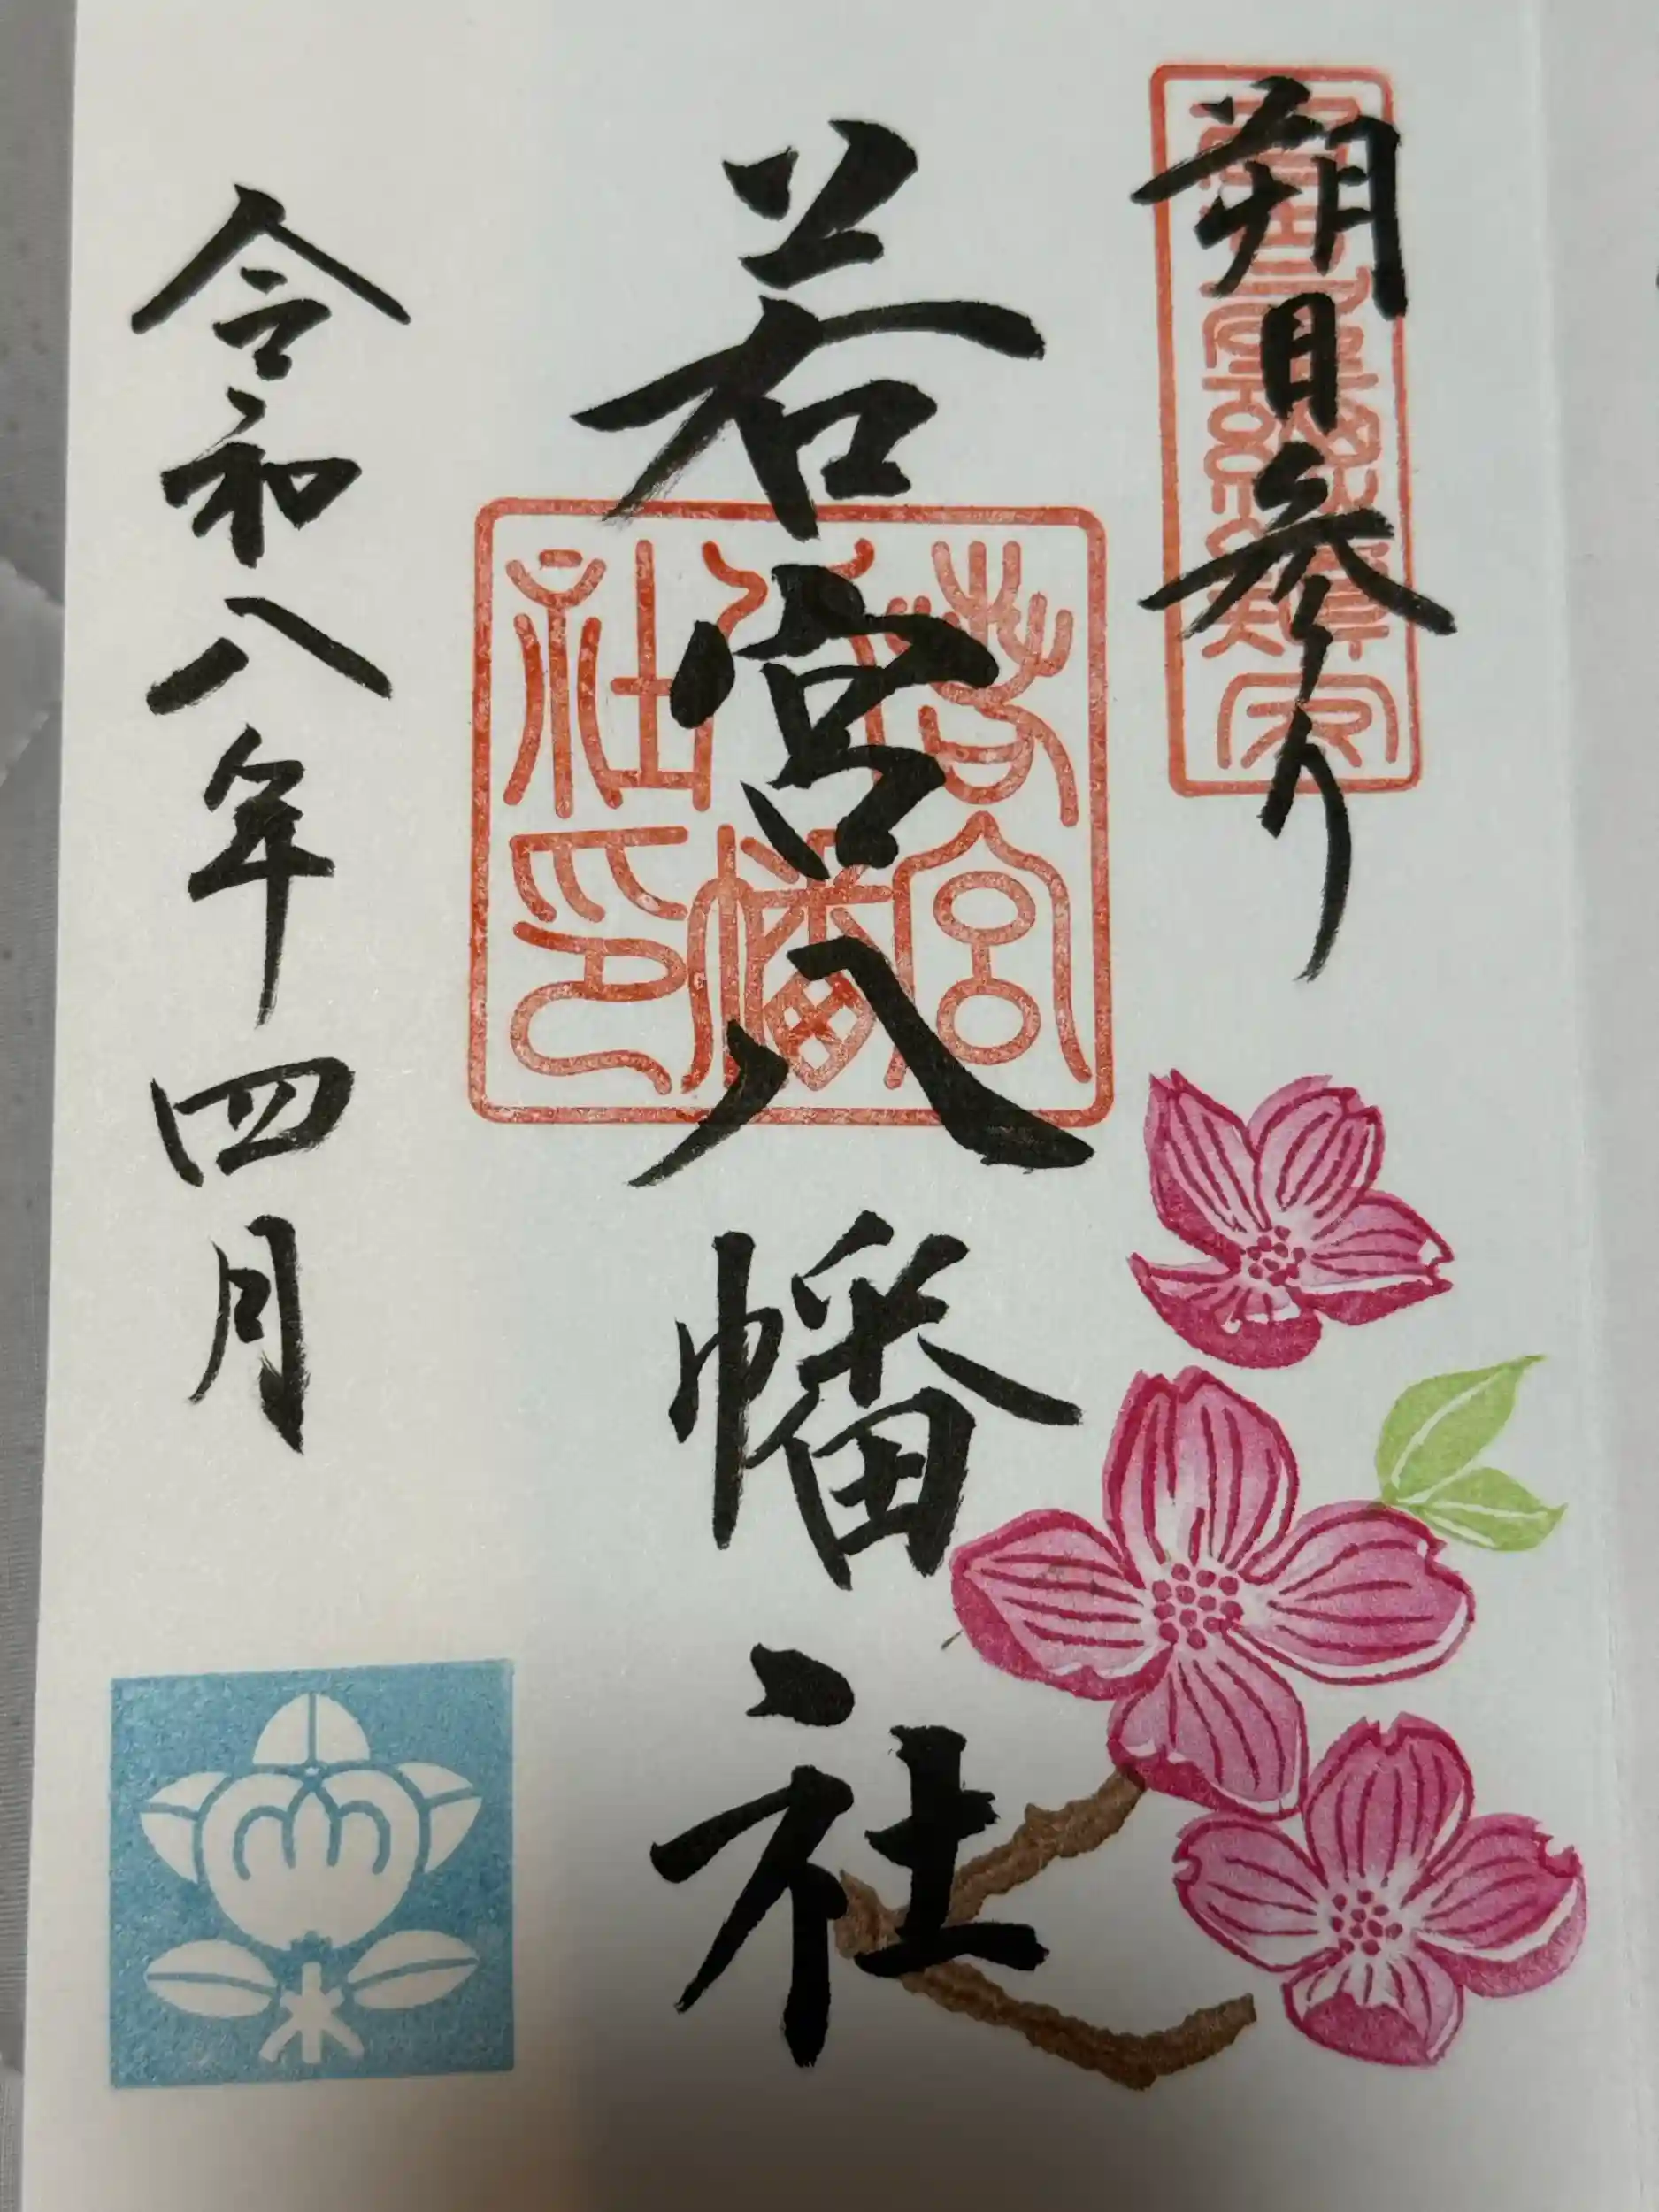 朔日参り
若宮八幡社
若宮八幡社印
令和八年四月